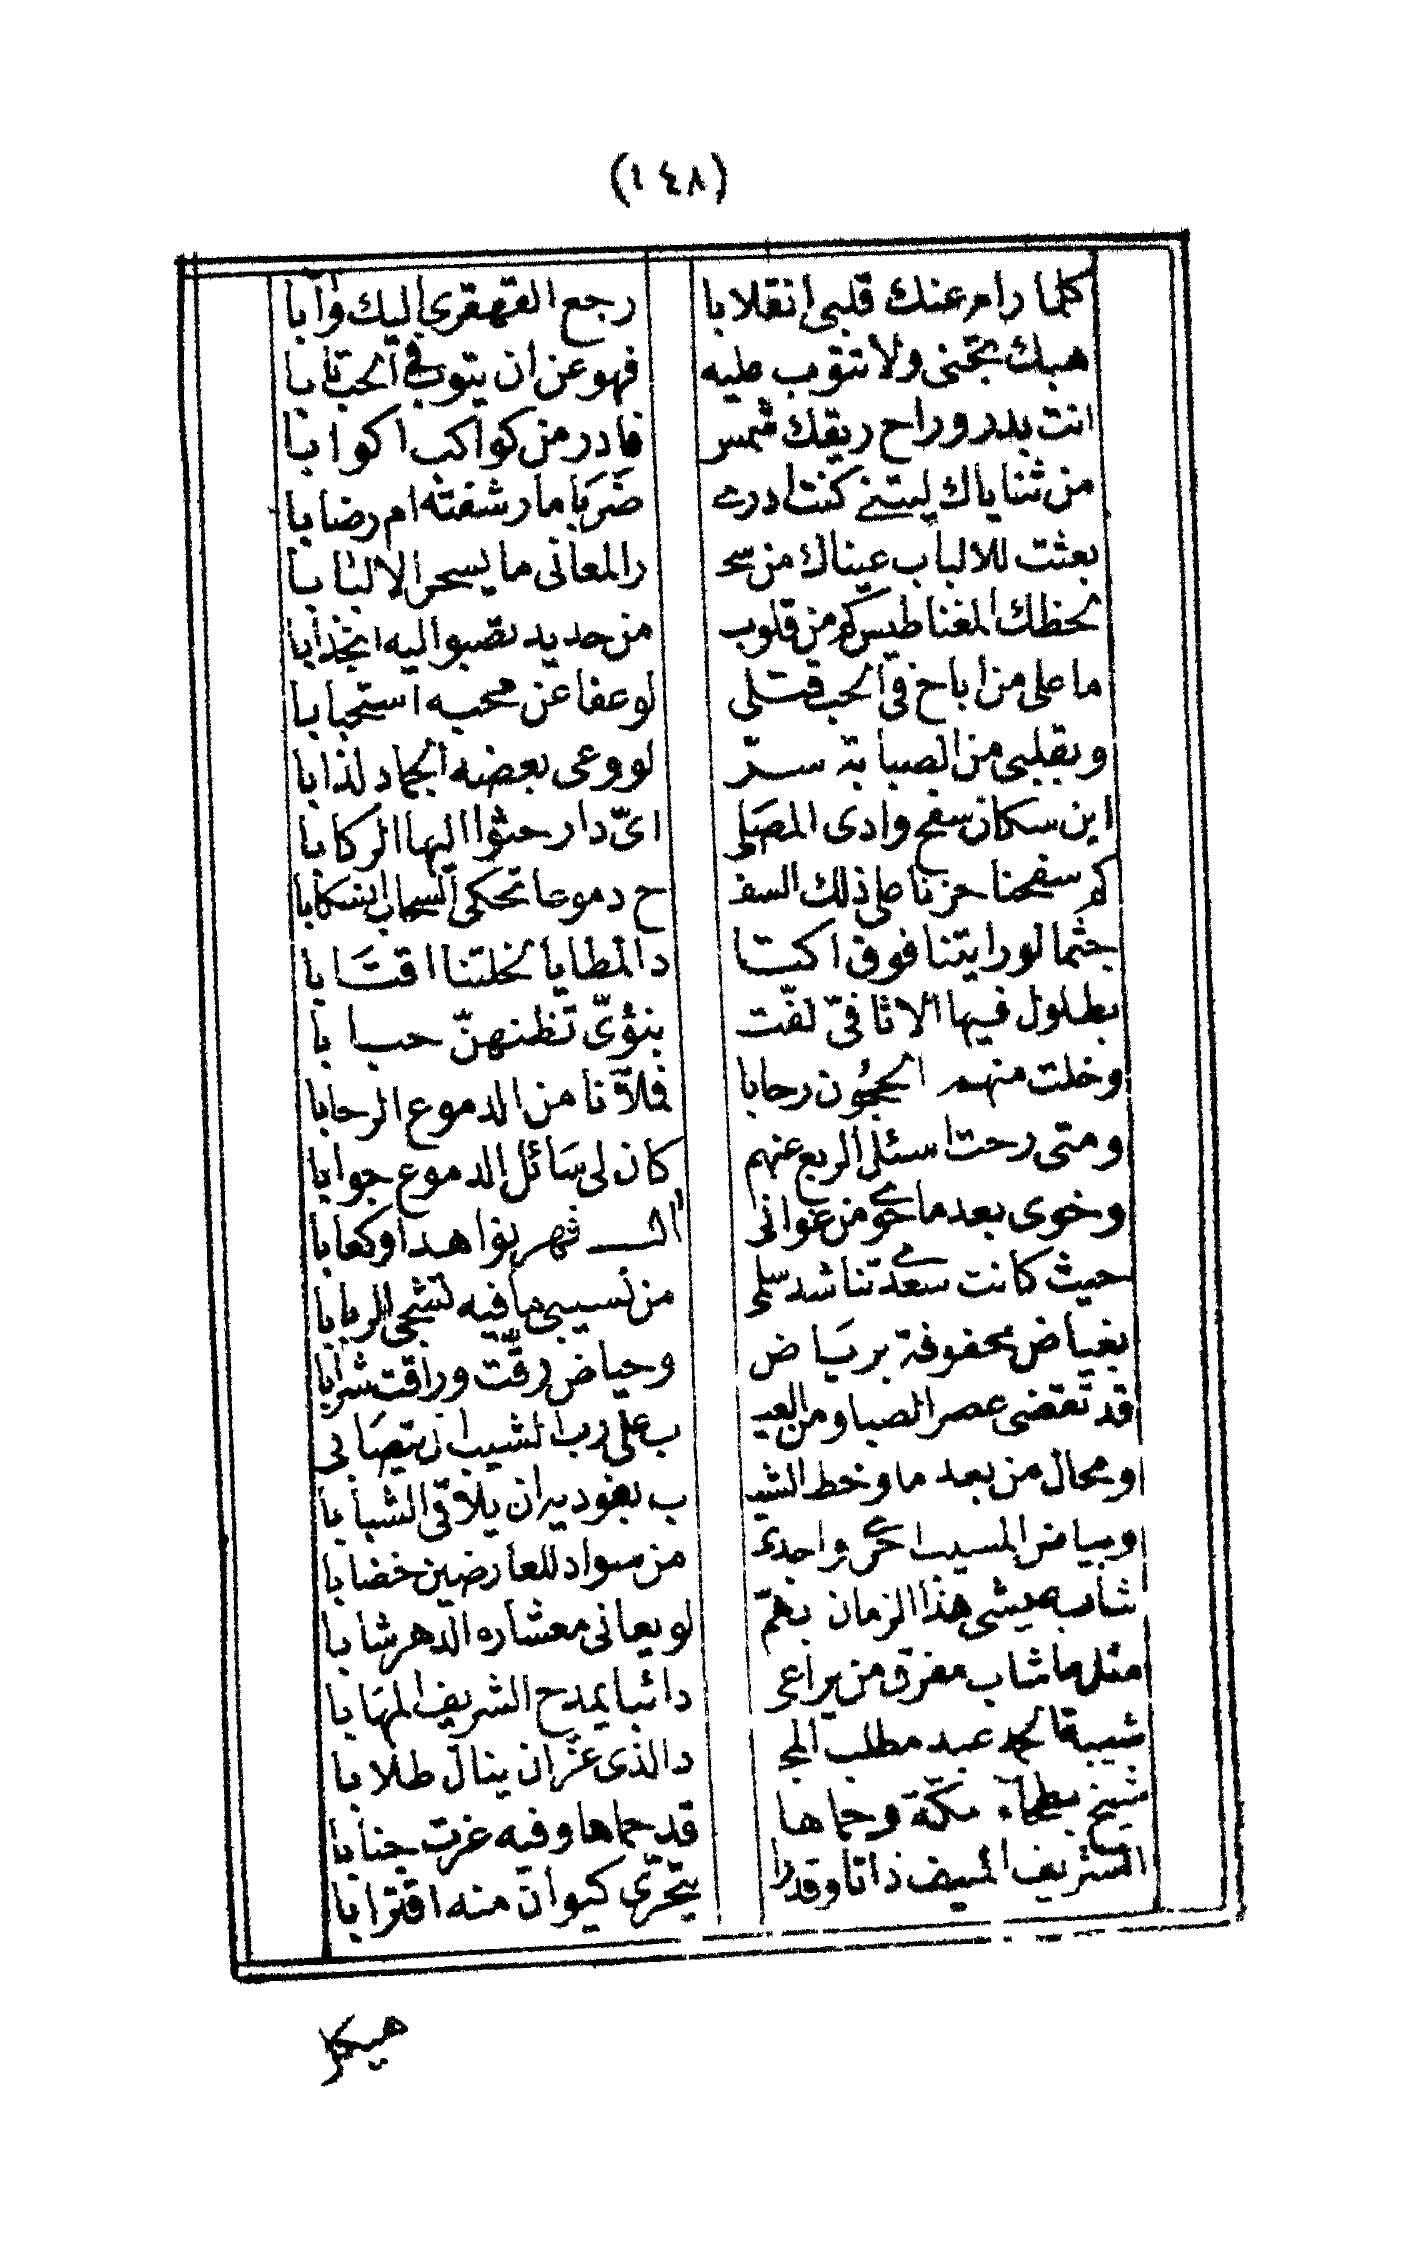 (١٤٨)
كلما رام عنك قلبي انقلابا رجع القهقرى اليك وآبا
هبك تجنى ولا تتوب عليه فهو عن ان يتوب في الحب تابا
انت بدر وراح ريقك شمس فادر من كواكب اكوابا
من ثناياك ليتني كنت ادرى ضربا ما رشفته ام رضابا
بعثت للالباب عيناك من سحـ ر المعانى ما يسحر الالبابا
لحظك المغناطيس كم من قلوب من حديد تصبوا اليه انجذابا
ما على من اباح في الحب قتلى لو عفا عن محبه استحبابا
وبقلبي من الصبابة سرّ لو وعى بعضه الجماد لذابا
اين سكان سفح وادى المصلى اىّ دار حثوا اليها الركابا
كم سفحنا حزنا على ذلك السفـ ح دموعا تحكى السحاب انسكابا
جثما لو رايتنا فوق اكتا د المطايا لخلتنا اقتابا
بطلول فيها الاثافىّ لفّت بنؤىّ تظنهنّ حبابا
وخلت منهم الحجون رحابا فملآنا من الدموع الرحابا
ومتى رحت اسئل الربع عنهم كان لى سائل الدموع جوابا
وخوى بعدما حوى من غوانى الـ ـشهر بوا هدا وكعابا
حيث كانت سعدى تناشد سلمى من نسيبى ما فيه تشجى الربابا
بغياض محفوفة برياض وحياض رقّت وراقت شرابا
قد تقضى عصر الصبا ومن العيـ ب على رب الشيب ان يتصابى
ومحال من بعد ما وخط الشيـ ب بفوديه ان يلاقى الشبابا
وبياض المسيب احرى واجدى من سواد للعارضين خضابا
شابه عيشى هذا الزمان بهمّ لو يعانى معشاره الدهر شابا
مثل ما شاب مفرق من يراعى دائبا يمدح الشريف المهابا
شيبة الحمد عبد مطلب المجـ د الذى عزّ ان ينال طلابا
شيخ بطحاء مكّة وحماها قد حماها وفيه عزت جنابا
الشريف المنيف ذاتا وقدرا يتحرّى كيوان منه اقترابا